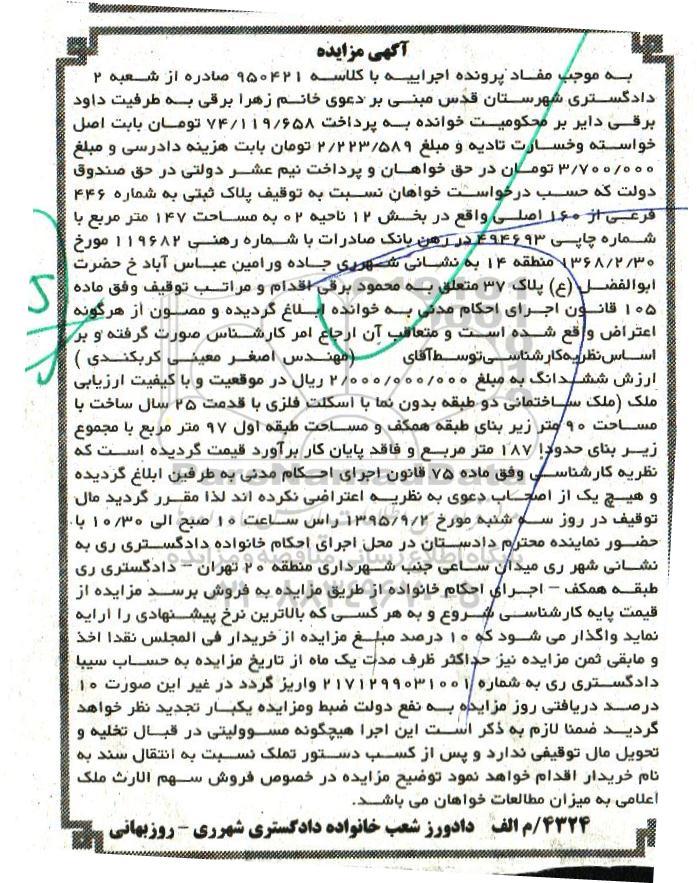 آگهی مزایده
به موجب مفاد پرونده اجراییه با کلاسه ۹۵۰۴۲۱ صادره از شعبه ۲
دادگستری شهرستان قدس مبنی بر دعوی خانم زهرا برقی به طرفیت داود
برقی دایر بر محکومیت خوانده به پرداخت ۷۴/۱۱۹/۶۵۸ تومان بابت اصل
خواسته وخسارت تادیه و مبلغ ۲/۲۲۳/۵۸۹ تومان بابت هزینه دادرسی و مبلغ
۳/۷۰۰/۰۰۰ تومان در حق خواهان و پرداخت نیم عشر دولتی در حق صندوق
دولت که حسب درخواست خواهان نسبت به توقیف پلاک ثبتی به شماره ۴۴۶
فرعی از ۱۶۰ اصلی واقع در بخش ۱۲ ناحیه ۰۲ به مساحت ۱۴۷ متر مربع با
شماره چاپی ۴۹۴۶۹۳ در رهن بانک صادرات با شماره رهنی ۱۱۹۶۸۲ مورخ
۱۳۶۸/۲/۳۰ منطقه ۱۴ به نشانی شهرری جاده ورامین عباس آباد خ حضرت
ابوالفضل (ع) پلاک ۳۷ متعلق به محمود برقی اقدام و مراتب توقیف وفق ماده
۱۰۵ قانون اجرای احکام مدنی به خوانده ابلاغ گردیده و مصون از هرگونه
اعتراض واقع شده است و متعاقب آن ارجاع امر کارشناس صورت گرفته و بر
اساس نظریه کارشناسی توسط آقای (مهندس اصغر معینی کربکندی )
ارزش ششدانگ به مبلغ ۲/۰۰۰/۰۰۰/۰۰۰ ریال در موقعیت و با کیفیت ارزیابی
ملک (ملک ساختمانی دو طبقه بدون نما با اسکلت فلزی با قدمت ۲۵ سال ساخت با
مساحت ۹۰ متر زیر بنای طبقه همکف و مساحت طبقه اول ۹۷ متر مربع با مجموع
زیر بنای حدودا ۱۸۷ متر مربع و فاقد پایان کار برآورد قیمت گردیده است که
نظریه کارشناسی وفق ماده ۷۵ قانون اجرای احکام مدنی به طرفین ابلاغ گردیده
و هیچ یک از اصحاب دعوی به نظریه اعتراضی نکرده اند لذا مقرر گردید مال
توقیف در روز سه شنبه مورخ ۱۳۹۵/۹/۲ راس ساعت ۱۰ صبح الی ۱۰/۳۰ با
حضور نماینده محترم دادستان در محل اجرای احکام خانواده دادگستری ری به
نشانی شهر ری میدان ساعی جنب شهرداری منطقه ۲۰ تهران – دادگستری ری
طبقه همکف – اجرای احکام خانواده از طریق مزایده به فروش برسد مزایده از
قیمت پایه کارشناسی شروع و به هر کسی که بالاترین نرخ پیشنهادی را ارایه
نماید واگذار می شود که ۱۰ درصد مبلغ مزایده از خریدار فی المجلس نقدا اخذ
و مابقی ثمن مزایده نیز حداکثر ظرف مدت یک ماه از تاریخ مزایده به حساب سیبا
دادگستری ری به شماره ۲۱۷۱۲۹۹۰۳۱۰۰۱ واریز گردد در غیر این صورت ۱۰
درصد دریافتی روز مزایده به نفع دولت ضبط ومزایده یکبار تجدید نظر خواهد
گردید ضمنا لازم به ذکر است این اجرا هیچگونه مسوولیتی در قبال تخلیه و
تحویل مال توقیفی ندارد و پس از کسب دستور تملک نسبت به انتقال سند به
نام خریدار اقدام خواهد نمود توضیح مزایده در خصوص فروش سهم الارث ملک
اعلامی به میزان مطالعات خواهان می باشد.
۴۳۲۴/م الف دادورز شعب خانواده دادگستری شهرری – روزبهانی